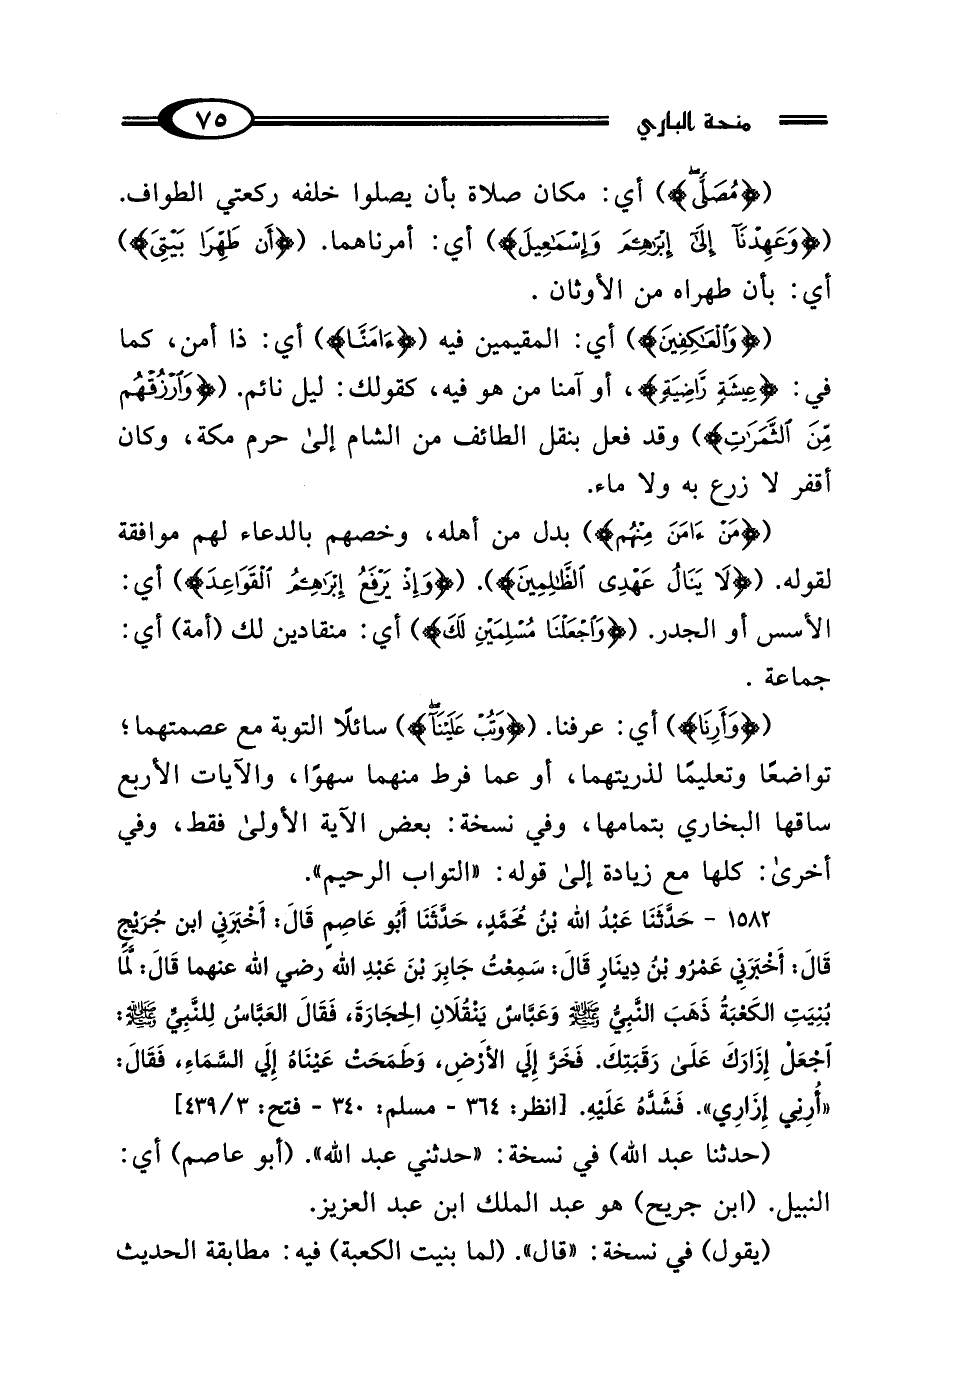 منحة الباري ٧٥
(﴿مُصَلًّى﴾) أي: مكان صلاة بأن يصلوا خلفه ركعتي الطواف.
(﴿وَعَهِدْنَآ إِلَىٰٓ إِبْرَٰهِـۧمَ وَإِسْمَٰعِيلَ﴾) أي: أمرناهما. (﴿أَن طَهِّرَا بَيْتِيَ﴾)
أي: بأن طهراه من الأوثان .
(﴿وَٱلْعَٰكِفِينَ﴾) أي: المقيمين فيه (﴿ءَامَنَّا﴾) أي: ذا أمن، كما
في: ﴿عِيشَةٍ رَّاضِيَةٍ﴾، أو آمنا من هو فيه، كقولك: ليل نائم. (﴿وَٱرْزُقْهُم
مِّنَ ٱلثَّمَرَٰتِ﴾) وقد فعل بنقل الطائف من الشام إلىٰ حرم مكة، وكان
أقفر لا زرع به ولا ماء.
(﴿مَنْ ءَامَنَ مِنْهُم﴾) بدل من أهله، وخصهم بالدعاء لهم موافقة
لقوله. (﴿لَا يَنَالُ عَهْدِى ٱلظَّٰلِمِينَ﴾). (﴿وَإِذْ يَرْفَعُ إِبْرَٰهِـۧمُ ٱلْقَوَاعِدَ﴾) أي:
الأسس أو الجدر. (﴿وَٱجْعَلْنَا مُسْلِمَيْنِ لَكَ﴾) أي: منقادين لك (أمة) أي:
جماعة .
(﴿وَأَرِنَا﴾) أي: عرفنا. (﴿وَتُبْ عَلَيْنَآ﴾) سائلًا التوبة مع عصمتهما؛
تواضعًا وتعليمًا لذريتهما، أو عما فرط منهما سهوًا، والآيات الأربع
ساقها البخاري بتمامها، وفي نسخة: بعض الآية الأولىٰ فقط، وفي
أخرىٰ: كلها مع زيادة إلىٰ قوله: «التواب الرحيم».
١٥٨٢ - حَدَّثَنَا عَبْدُ الله بْنُ مُحَمَّدٍ، حَدَّثَنَا أَبُو عَاصِمٍ قَالَ: أَخْبَرَنِي ابن جُرَيْجٍ
قَالَ: أَخْبَرَنِي عَمْرُو بْنُ دِينَارٍ قَالَ: سَمِعْتُ جَابِرَ بْنَ عَبْدِ الله رضي الله عنهما قَالَ: لَمَّا
بُنِيَتِ الكَعْبَةُ ذَهَبَ النَّبِيُّ ﷺ وَعَبَّاسٌ يَنْقُلَانِ الحِجَارَةَ، فَقَالَ العَبَّاسُ لِلنَّبِيِّ ﷺ:
اجْعَلْ إِزَارَكَ عَلَىٰ رَقَبَتِكَ. فَخَرَّ إِلَي الأَرْضِ، وَطَمَحَتْ عَيْنَاهُ إِلَي السَّمَاءِ، فَقَالَ:
«أَرِنِي إِزَارِي». فَشَدَّهُ عَلَيْهِ. [انظر: ٣٦٤ - مسلم: ٣٤٠ - فتح: ٤٣٩/٣]
(حدثنا عبد الله) في نسخة: «حدثني عبد الله». (أبو عاصم) أي:
النبيل. (ابن جريح) هو عبد الملك ابن عبد العزيز.
(يقول) في نسخة: «قال». (لما بنيت الكعبة) فيه: مطابقة الحديث